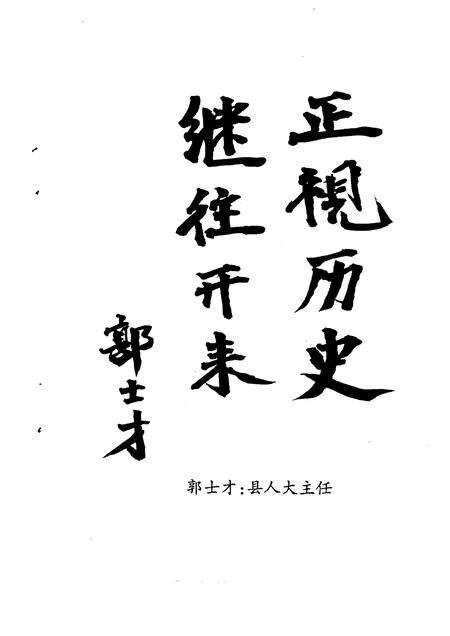 正視历史
继往开来
郭士才
郭士才:县人大主任